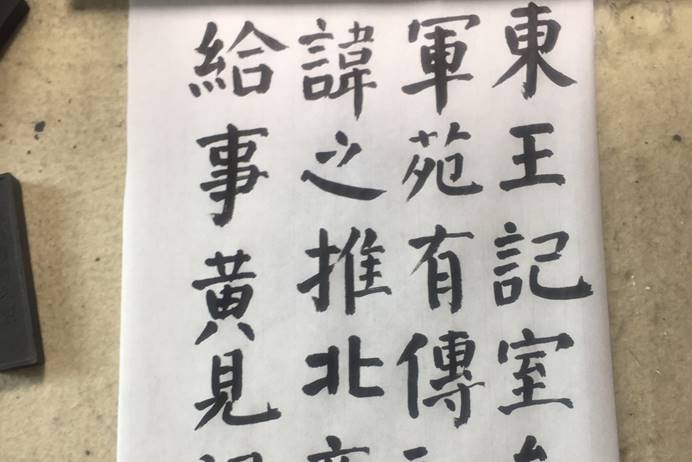 東王記室
軍苑有傳
諱之推北
給事黄見